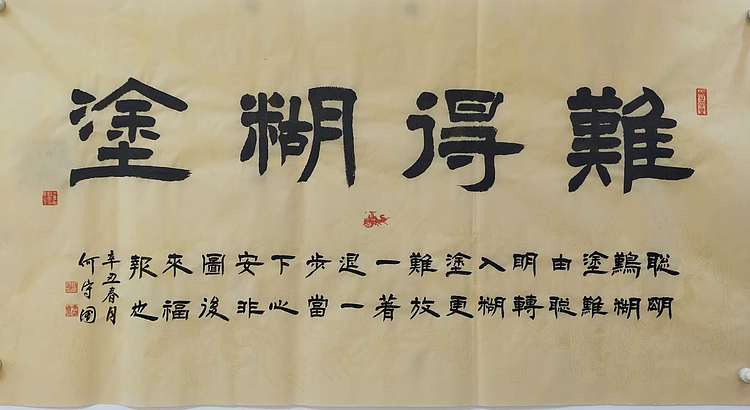 難得糊塗
聰明
難糊
塗難
由聰
明轉
入糊
塗更
難放
一著
退一
步當
下心
安非
圖後
來福
報也
辛丑春月
何守國